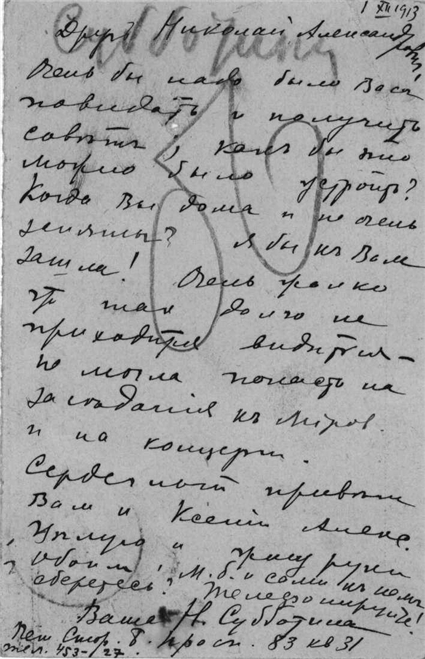 1 XII 1913
Субботину
Другъ Николай Александровичъ!
Очень бы надо было Васъ
повидать и получить
советъ, какъ бы это
можно было устроить?
Когда Вы дома и не очень
заняты? Я бы къ Вам
зашла! Очень жалко
что так долго не
приходится видеться –
не могла попасть на
заседанія къ Міров.
и на концерты.
Сердечный привет
Вам и Ксеніи Алекс.
Целую и жму руки
обоим! М. б. и сами къ нам
сберетесь? Телефонируйте!
Ваша Н. Субботина
Пет. Стор. Б. просп. 83 кв 31
тел. 453–27.